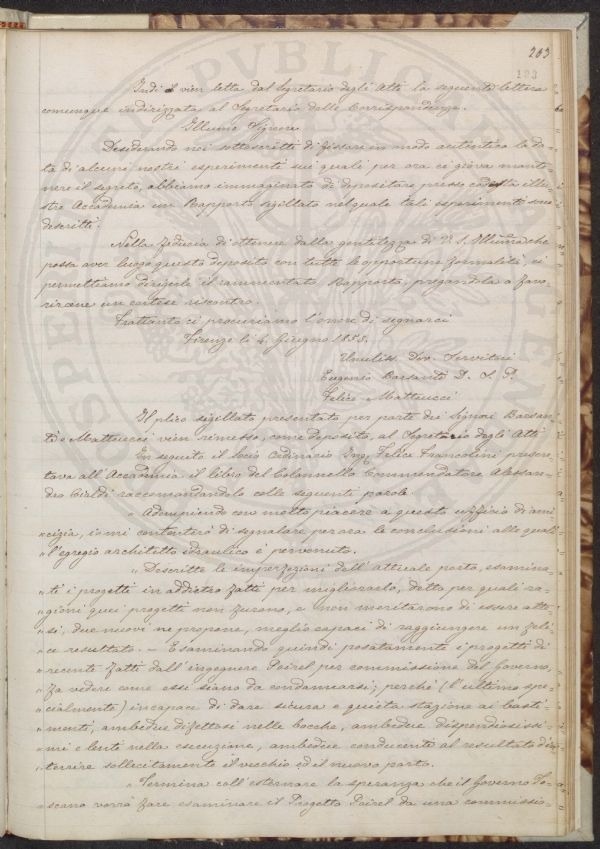 203
193
Indi vien letta dal Segretario degli Atti la seguente lettera
comunque indirizzata al Segretario delle Corrispondenze.
Illumo Signore
Desiderando noi sottoscritti di fissare in modo autentico la da-
ta di alcuni nostri esperimenti sui quali per ora ci giova mante-
nere il segreto, abbiamo immaginato di depositare presso codesta illu-
stre Accademia un Rapporto sigillato nel quale tali esperimenti sono
descritti.
Nella fiducia di ottenere dalla gentilezza di V. S. Illuma che
possa aver luogo questo deposito con tutte le opportune formalità, ci
permettiamo dirigerle il rammentato Rapporto, pregandola a favo-
rircene un cortese riscontro.
Frattanto ci procuriamo l'onore di segnarci
Firenze li 4. Giugno 1853.
Umiliss. Dev. Servitori
Eugenio Barsanti D. S. P.
Felice Matteucci
Il plico sigillato presentato per parte dei Signori Barsan-
ti e Matteucci vien rimesso, come deposito, al Segretario degli Atti
In seguito il socio Ordinario Ing. Felice Francolini presen-
tava all'Accademia il libro del Colonnello Commendatore Alessan-
dro Cialdi raccomandandolo colle seguenti parole.
" Adempiendo con molto piacere a questo uffizio di ami
" cizia, io mi contenterò di segnalare per ora le conclusioni alle quali
" l'egregio architetto idraulico è pervenuto.
" Descritte le imperfezioni dell'attuale porto, esamina-
" ti i progetti in addietro fatti per migliorarlo, detto per quali ra-
" gioni quei progetti non furono, e non meritarono di essere atte-
" si, due nuovi ne propone, meglio capaci di raggiungere un feli-
" ce resultato. - Esaminando quindi posatamente i progetti di
" recente fatti dall'ingegnere Poirel per commissione del Governo,
" fa vedere come essi siano da condannarsi; perchè (l'ultimo spe-
" cialmente) incapaci di dare sicura e quieta stazione ai basti-
" menti, ambedue difettosi nelle bocche, ambedue dispendiosissi-
" mi e lenti nella esecuzione, ambedue conducenti al resultato d'in-
" terrire sollecitamente il vecchio ed il nuovo porto.
" Termina coll'esternare la speranza che il Governo To-
" scano vorrà fare esaminare il Progetto Poirel da una commissio-